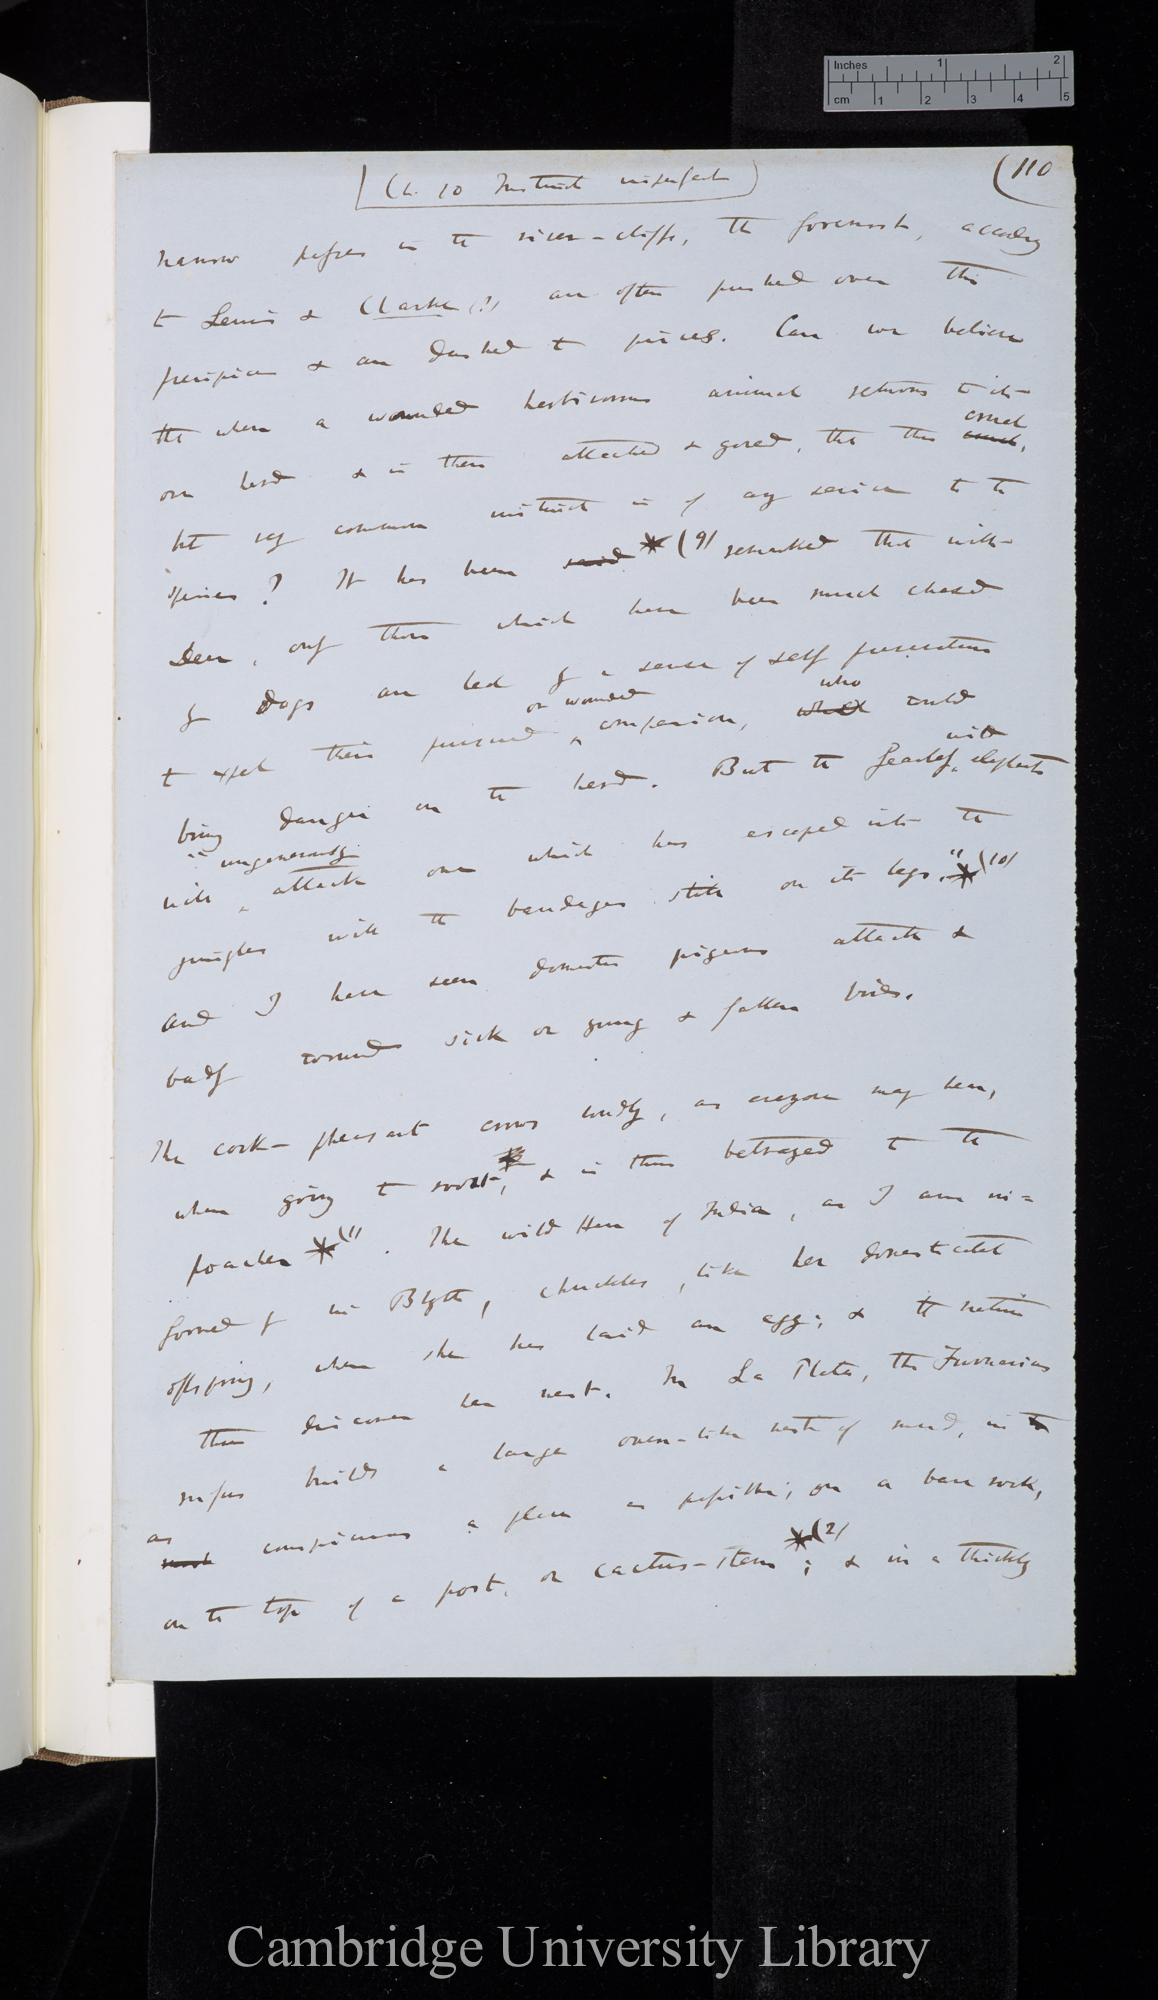 Inches 1 2
cm 1 2 3 4 5
(110
Ch. 10 Instinct imperfect
narrow passes in the river-cliffs, the foremost, according
to Lewis & Clarke (?) are often pushed over the
precipice & are dashed to pieces. Can we believe
that when a wounded herbivorous animal returns to its
cruel
own herd & is then attacked & gored, that this cruel,
but very common instinct is of any service to the
species? It has been said *(9) remarked that with
Deer, only those which have been much chased
by dogs are led by a sense of self preservation
or wounded who
to expel their pursued ^ companion, which could
wild
bring danger on the herd. But the fearless ^ elephants
"ungenerously
will ^ attack one which has escaped into the
jungles with the bandages still on its legs." *(10)
and I have seen domestic pigeons attack &
badly wound sick or young & fallen birds.
The cock-pheasant crows loudly, as everyone may hear,
when going to roost, & is thus betrayed to the
poacher *(11 . The wild Hen of India, as I am in=
formed by Mr Blyth, chuckles, like her domesticated
offspring, when she has laid an egg; & the natives
thus discover her nest. In La Plata, the Furnarius
rufus builds a large oven-like nest of mud, in
as
such conspicuous a place as possible; on a bare rock,
*(2)
on the top of a post, or cactus-stem; & in a thickly
Cambridge University Library